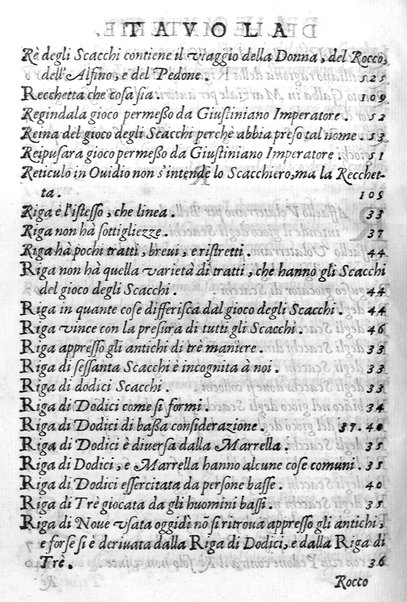 TAVOLA
Rè degli Scacchi contiene il viaggio della Donna, del Rocco,
dell'Alfino, e del Pedone. 525
Recchetta che cosa sia. 109
Regindala gioco permeßo da Giustiniano Imperatore. 52
Reina del gioco degli Scacchi perchè abbia preso tal nome. 53
Reipusara gioco permeßo da Giustiniano Imperatore. 51
Reticulo in Ouidio non s'intende lo Scacchiero, ma la Recchet-
ta. 105
Riga è l'istesso, che linea. 33
Riga non hà sottigliezze. 37
Riga hà pochi tratti, breui, e ristretti. 44
Riga non hà quella varietà di tratti, che hanno gli Scacchi
del gioco degli Scacchi. 44
Riga in quante cose differisca dal gioco degli Scacchi. 44
Riga vince con la presura di tutti gli Scacchi. 46
Riga appresso gli antichi di tre maniere. 33
Riga di sessanta Scacchi è incognita à noi. 33
Riga di dodici Scacchi. 33
Riga di Dodici come si formi. 34
Riga di Dodici di baßa considerazione. 37. 40
Riga di Dodici è diuersa dalla Marrella. 35
Riga di Dodici, e Marrella hanno alcune cose comuni. 35
Riga di Dodici essercitata da persone basse. 40
Riga di Trè giocata da gli huomini bassi. 35
Riga di Noue vsata oggidì nõ si ritroua appresso gli antichi,
e forse si è deriuata dalla Riga di Dodici, e dalla Riga di
Trè. 36
Rocco